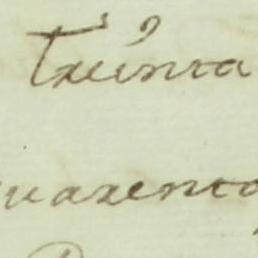 Treinta
quarenta